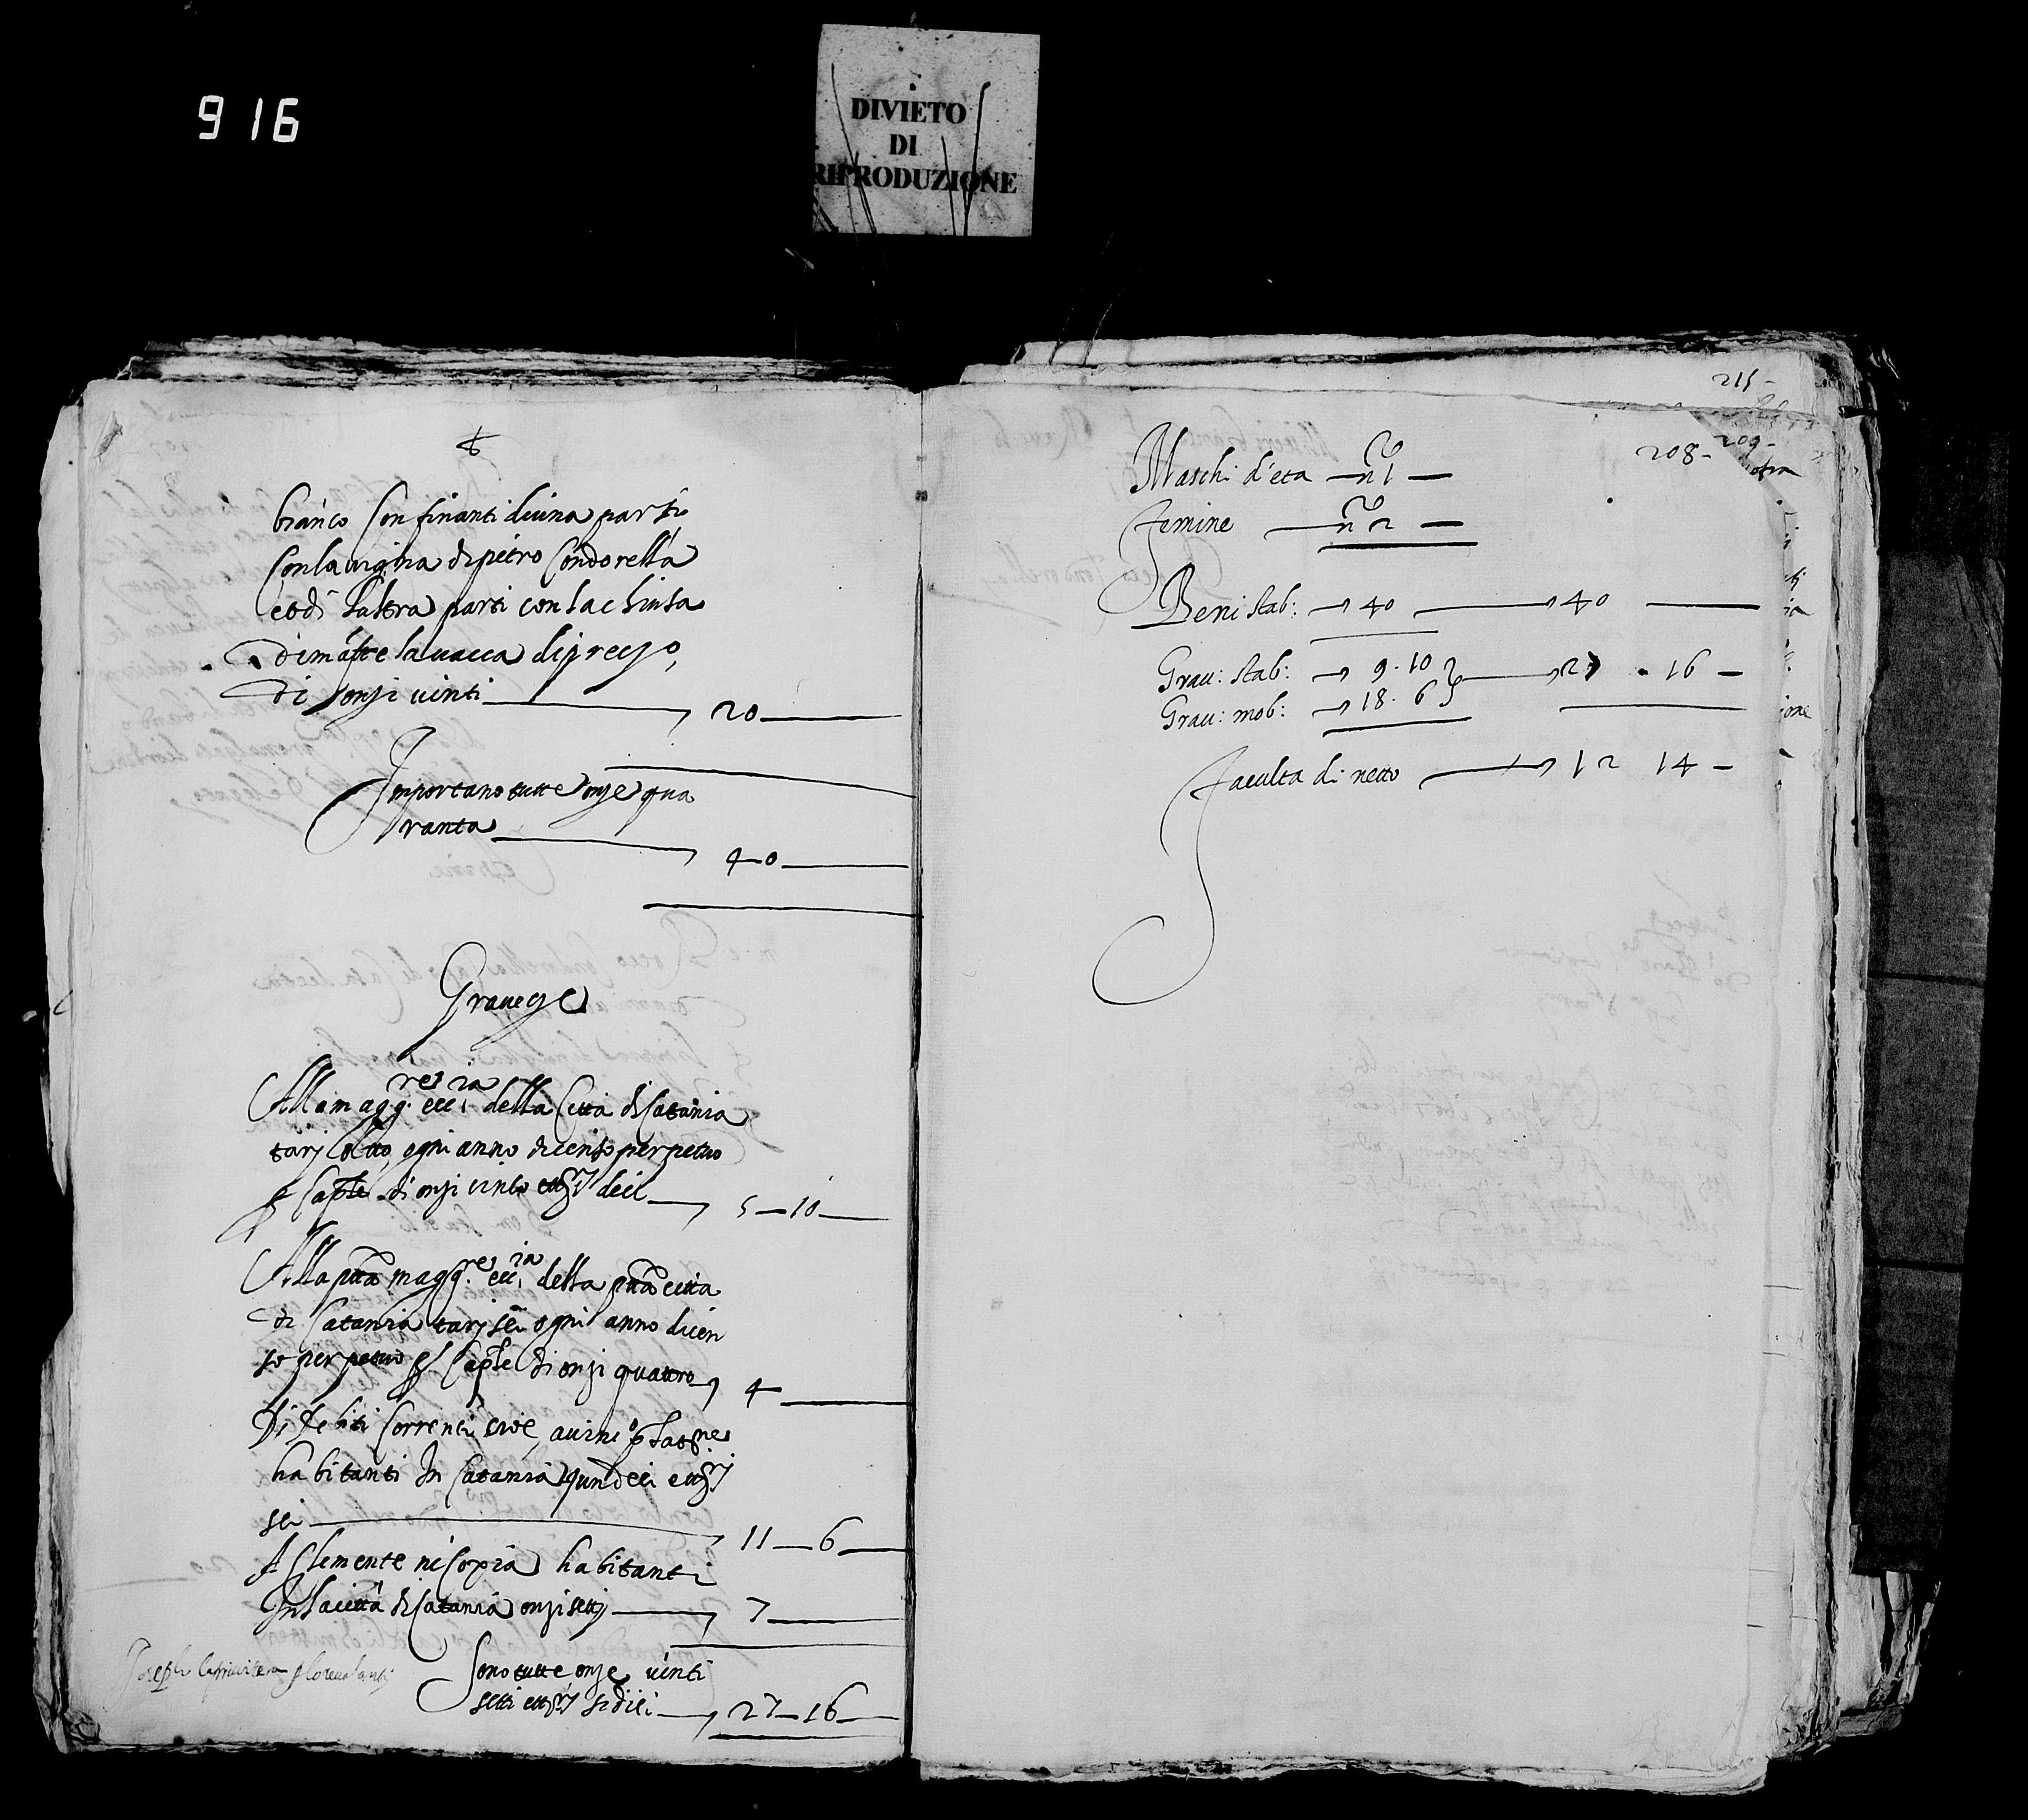 916
DIVIETO
DI
RIPRODUZIONE
bianco Confinanti di una parti
Con la vigna di pietro Condorella
et di l'altra parti con la chiusa
di la vacca di prezo
di onzi vinti 20
Importano tutte onze qua
ranta 40
Gravezze
Alla magg.re ecc.ia della Città di Catania
tarj otto, ogni anno di censo perpetuo
p Cap.le di onzi cinco et trj deci 5 10
Alla p.tta magg.re ecc.ia della p.tta città
di Catania tarj sei ogni anno di cen
so perpetuo p Cap.le di onzi quattro 4
Di debiti Correnti cioè,
habitanti In Catania et trj
sei 11 6
A Clemente niCoxia habitanti
In la città di Catania onzi setti 7
Sono tutte onze vinti
setti et trj sidici 27 16
Joseph
215
209
208
Maschi d'eta n.ro 1
Femine n.ro 2
Beni stab: 40 40
Grav: stab: 9. 10
27 . 16
Grav: mob: 18. 6
Faculta di netto 12 14